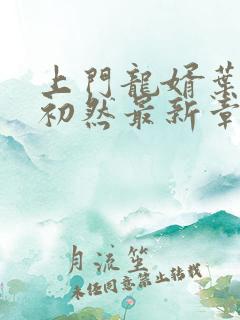 上門龍婿葉
初然最新章
月流笙
未经同意禁止转载